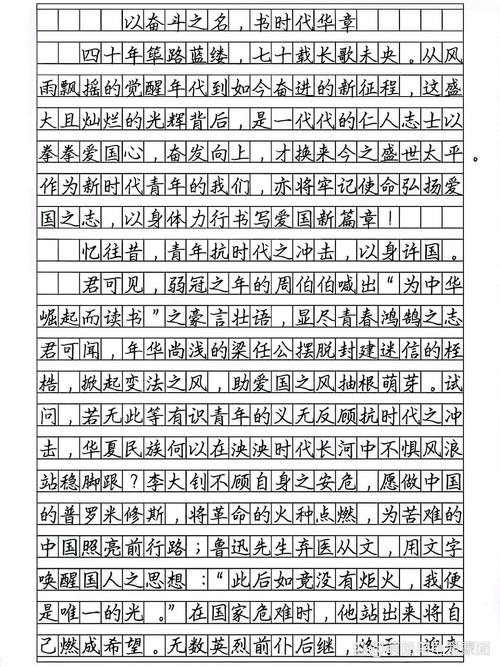 以奋斗之名，书时代华章
四十年筚路蓝缕，七十载长歌未央。从风
雨飘摇的觉醒年代到如今奋进的新征程，这盛
大且灿烂的光辉背后，是一代代的仁人志士以
拳拳爱国心，奋发向上，才换来今之盛世太平。
作为新时代青年的我们，亦将牢记使命弘扬爱
国之志，以身体力行书写爱国新篇章！
忆往昔，青年抗时代之冲击，以身许国。
君可见，弱冠之年的周伯伯喊出“为中华
崛起而读书”之豪言壮语，显尽青春鸿鹄之志
君可闻，年华尚浅的梁任公摆脱封建迷信的桎
梏，掀起变法之风，助爱国之风抽根萌芽。试
问，若无此等有识青年的义无反顾抗时代之冲
击，华夏民族何以在泱泱时代长河中不惧风浪
站稳脚跟？李大钊不顾自身之安危，愿做中国
的普罗米修斯，将革命的火种点燃，为苦难的
中国照亮前行路；鲁迅先生弃医从文，用文字
唤醒国人之思想：“此后如竟没有炬火，我便
是唯一的光。”在国家危难时，他站出来将自
己燃成希望。无数英烈前仆后继，终于，迎